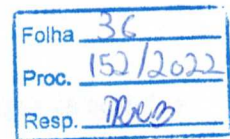 Folha 36
Proc. 152/2022
Resp.